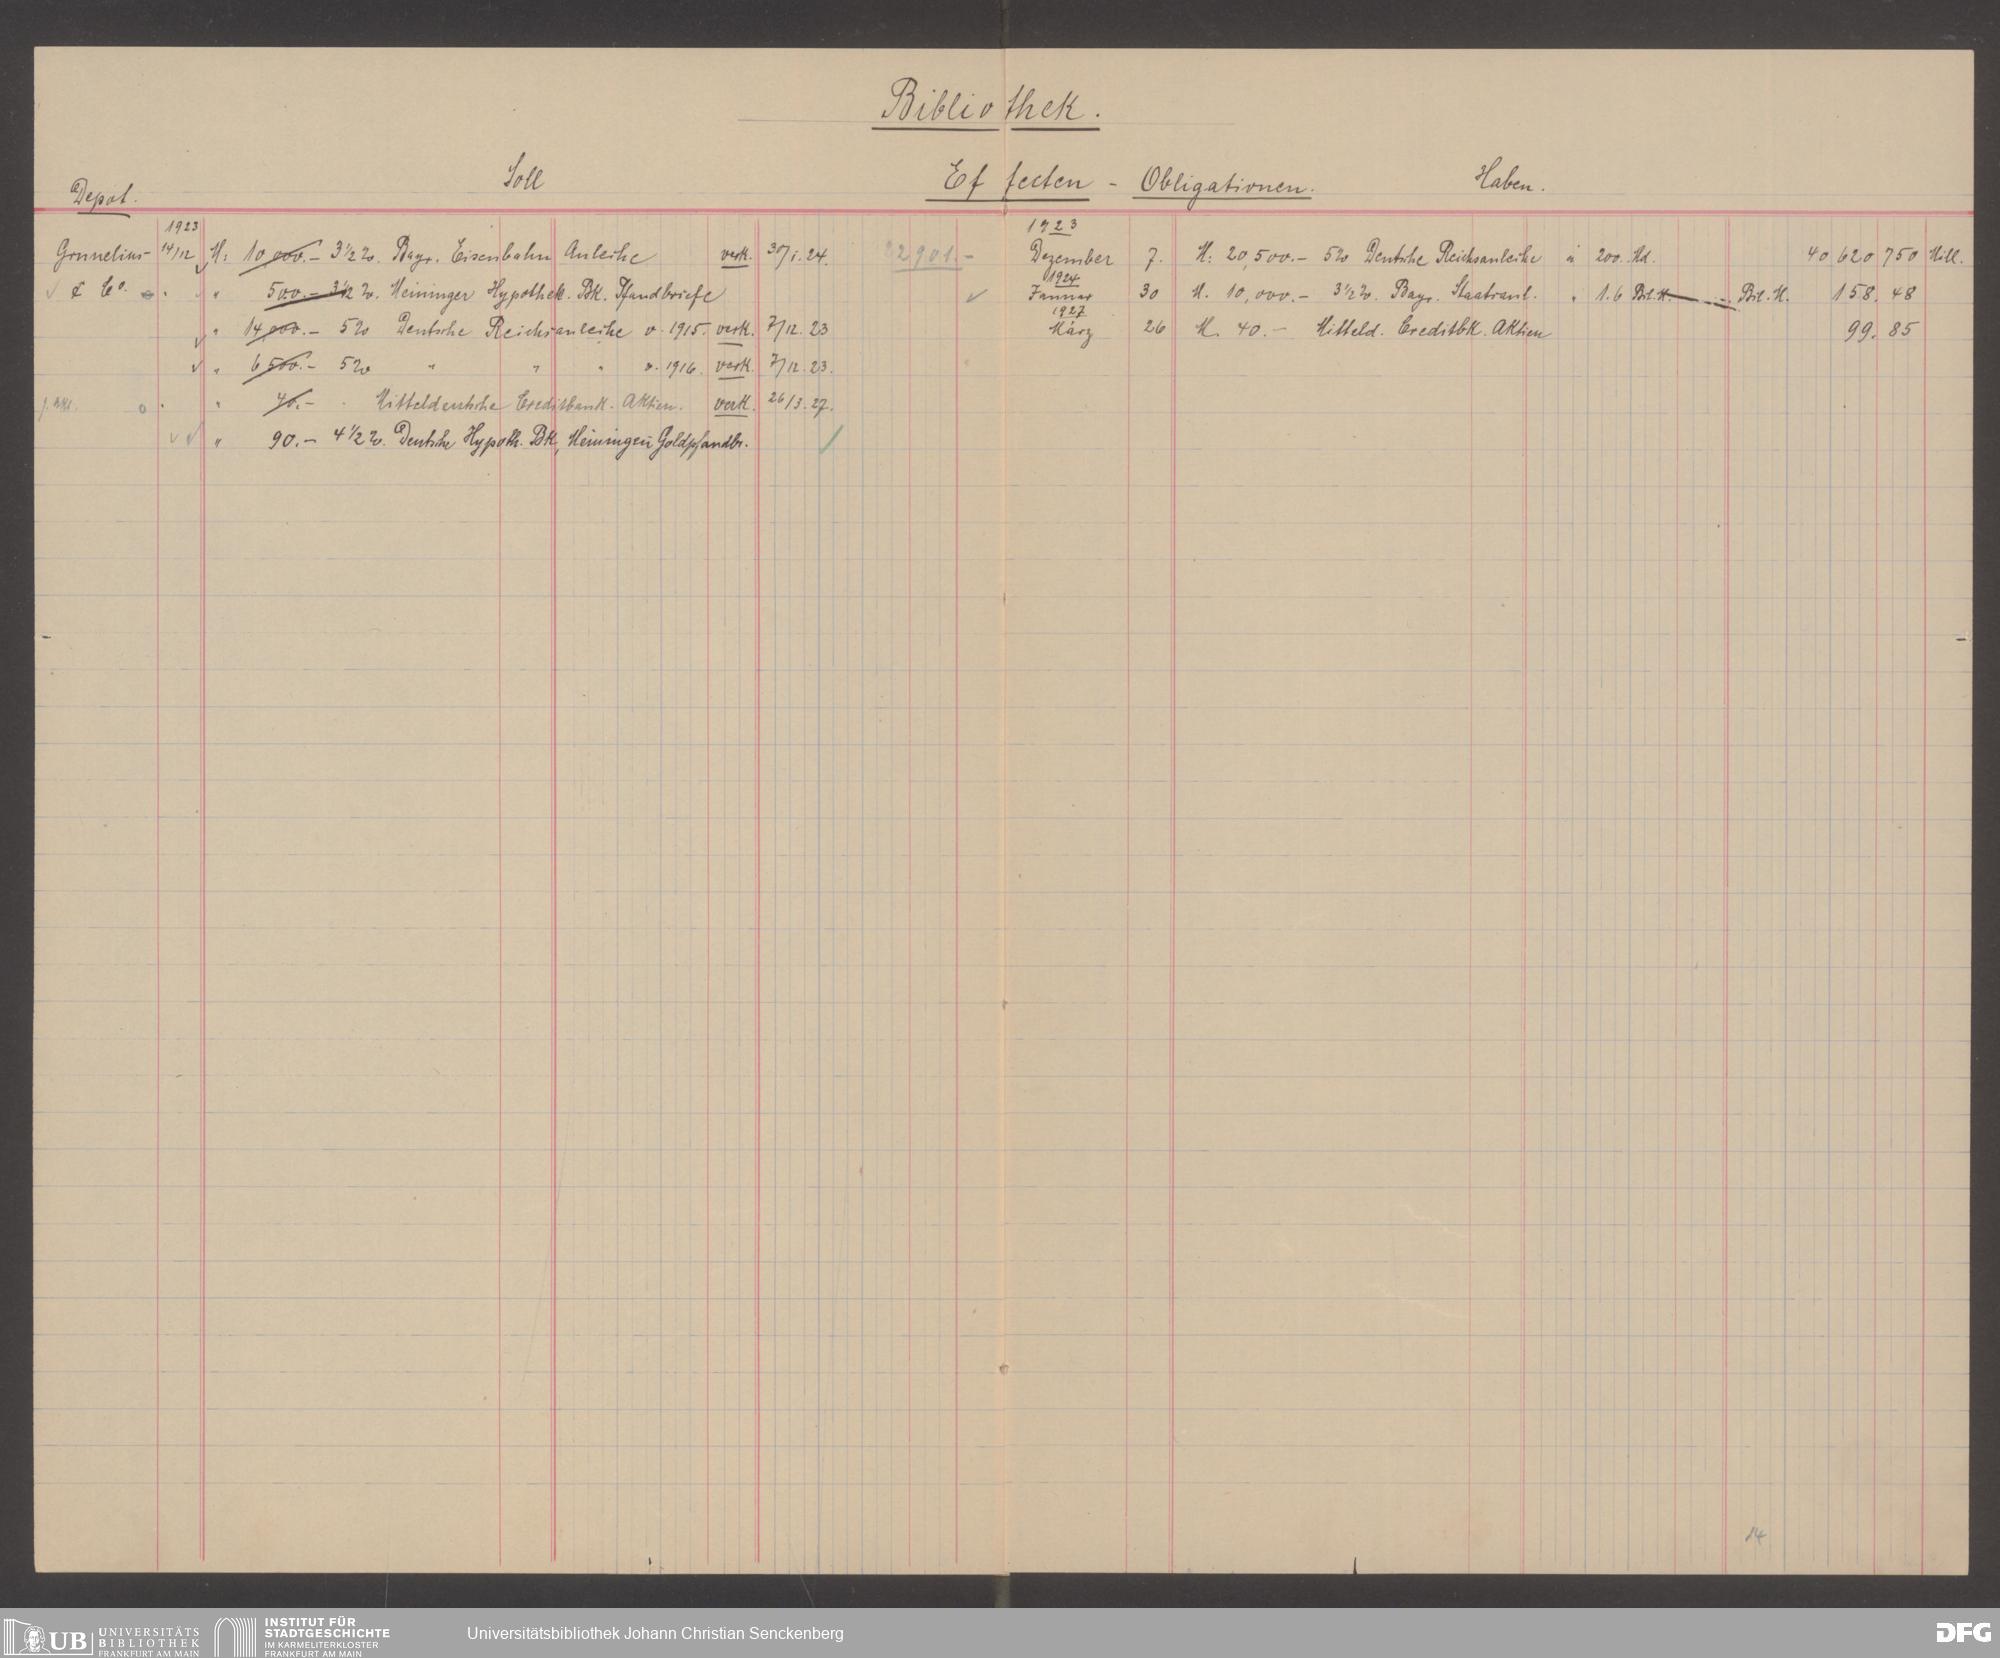 Bibliothek.
Depot. Soll Effecten - Obligationen. Haben.
1923
Grunelius- 14/12 M: 10,000.- 3½%. Bayr. Eisenbahn Anleihe verk. 30/1.24. 22901.-
& Co. " 500.- 3½%. Meininger Hypothek. Bk. Pfandbriefe
" 14,000.- 5% Deutsche Reichsanleihe v. 1915. verk. 7/12.23
" 6500.- 5% " " " v. 1916. verk. 7/12.23.
" 40.- Mitteldeutsche Creditbank. Aktien. verk. 26/3.27.
" 90.- 4½%. Deutsche Hypoth. Bk, Meiningen Goldpfandbr.
1923
Dezember 7. M: 20,500.- 5% Deutsche Reichsanleihe à 200. Md. 40 620 750 Mill.
1924
Januar 30 M. 10,000.- 3½%. Bayr. Staatsanl. " 1.6 Bil. M. Bil. M. 158.48
1927
März 26 M. 40.- Mitteld. Creditbk. Aktien 99.85
14
UB UNIVERSITÄTS
BIBLIOTHEK
FRANKFURT AM MAIN
INSTITUT FÜR
STADTGESCHICHTE
IM KARMELITERKLOSTER
FRANKFURT AM MAIN
Universitätsbibliothek Johann Christian Senckenberg
DFG